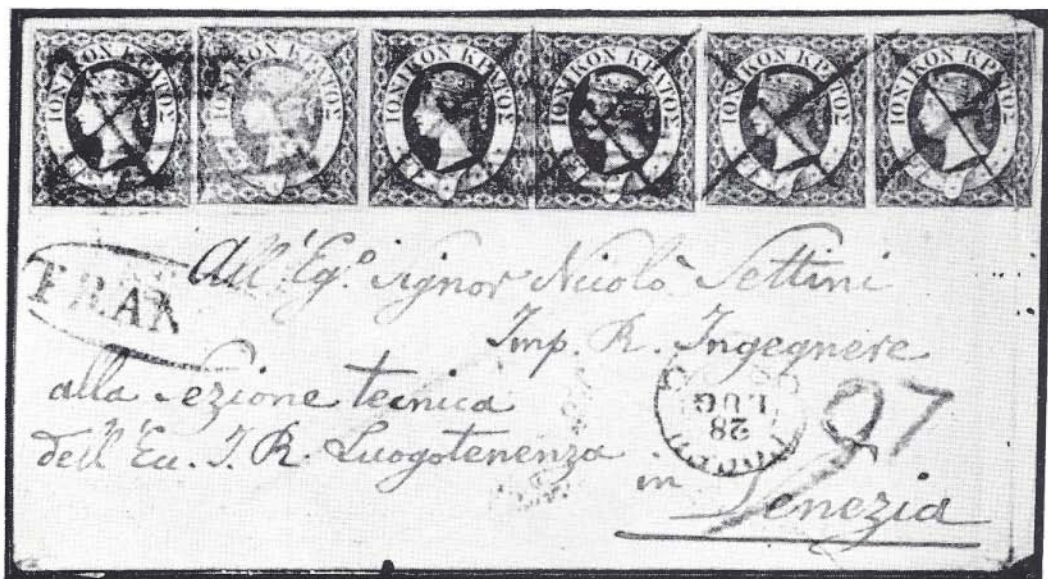 ΙΟΝΙΚΟΝ ΚΡΑΤΟΣ
ΙΟΝΙΚΟΝ ΚΡΑΤΟΣ
ΙΟΝΙΚΟΝ ΚΡΑΤΟΣ
ΙΟΝΙΚΟΝ ΚΡΑΤΟΣ
ΙΟΝΙΚΟΝ ΚΡΑΤΟΣ
ΙΟΝΙΚΟΝ ΚΡΑΤΟΣ
FRAN
All'Egº Signor Nicolò Settini
Imp. R. Ingegnere
alla Sezione tecnica
dell'Ecc. I. R. Luogotenenza
28
LUG
97
in
Venezia